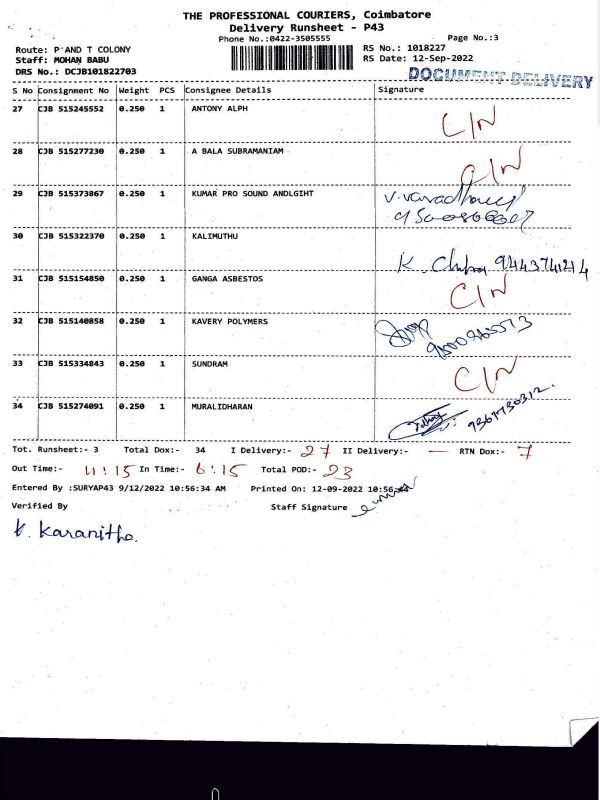 THE PROFESSIONAL COURIERS, Coimbatore
Delivery Runsheet - P43
Phone No.:0422-3505555
Page No.:3
Route: P AND T COLONY
RS No.: 1018227
Staff: MOHAN BABU
RS Date: 12-Sep-2022
DRS No.: DCJB101822703
DOCUMENT DELIVERY
S No Consignment No Weight PCS Consignee Details Signature
27 CJB 515245552 0.250 1 ANTONY ALPH C/N
28 CJB 515277230 0.250 1 A BALA SUBRAMANIAM C/N
29 CJB 515373867 0.250 1 KUMAR PRO SOUND ANDLGIHT
30 CJB 515322370 0.250 1 KALIMUTHU K. 9443741214
31 CJB 515154850 0.250 1 GANGA ASBESTOS C/N
32 CJB 515140858 0.250 1 KAVERY POLYMERS
33 CJB 515334843 0.250 1 SUNDRAM C/N
34 CJB 515274091 0.250 1 MURALIDHARAN
Tot. Runsheet:- 3 Total Dox:- 34 I Delivery:- 27 II Delivery:- — RTN Dox:- 7
Out Time:- 11:15 In Time:- 6:15 Total POD:- 23
Entered By :SURYAP43 9/12/2022 10:56:34 AM Printed On: 12-09-2022 10:56
Verified By Staff Signature
K. Karanitha.